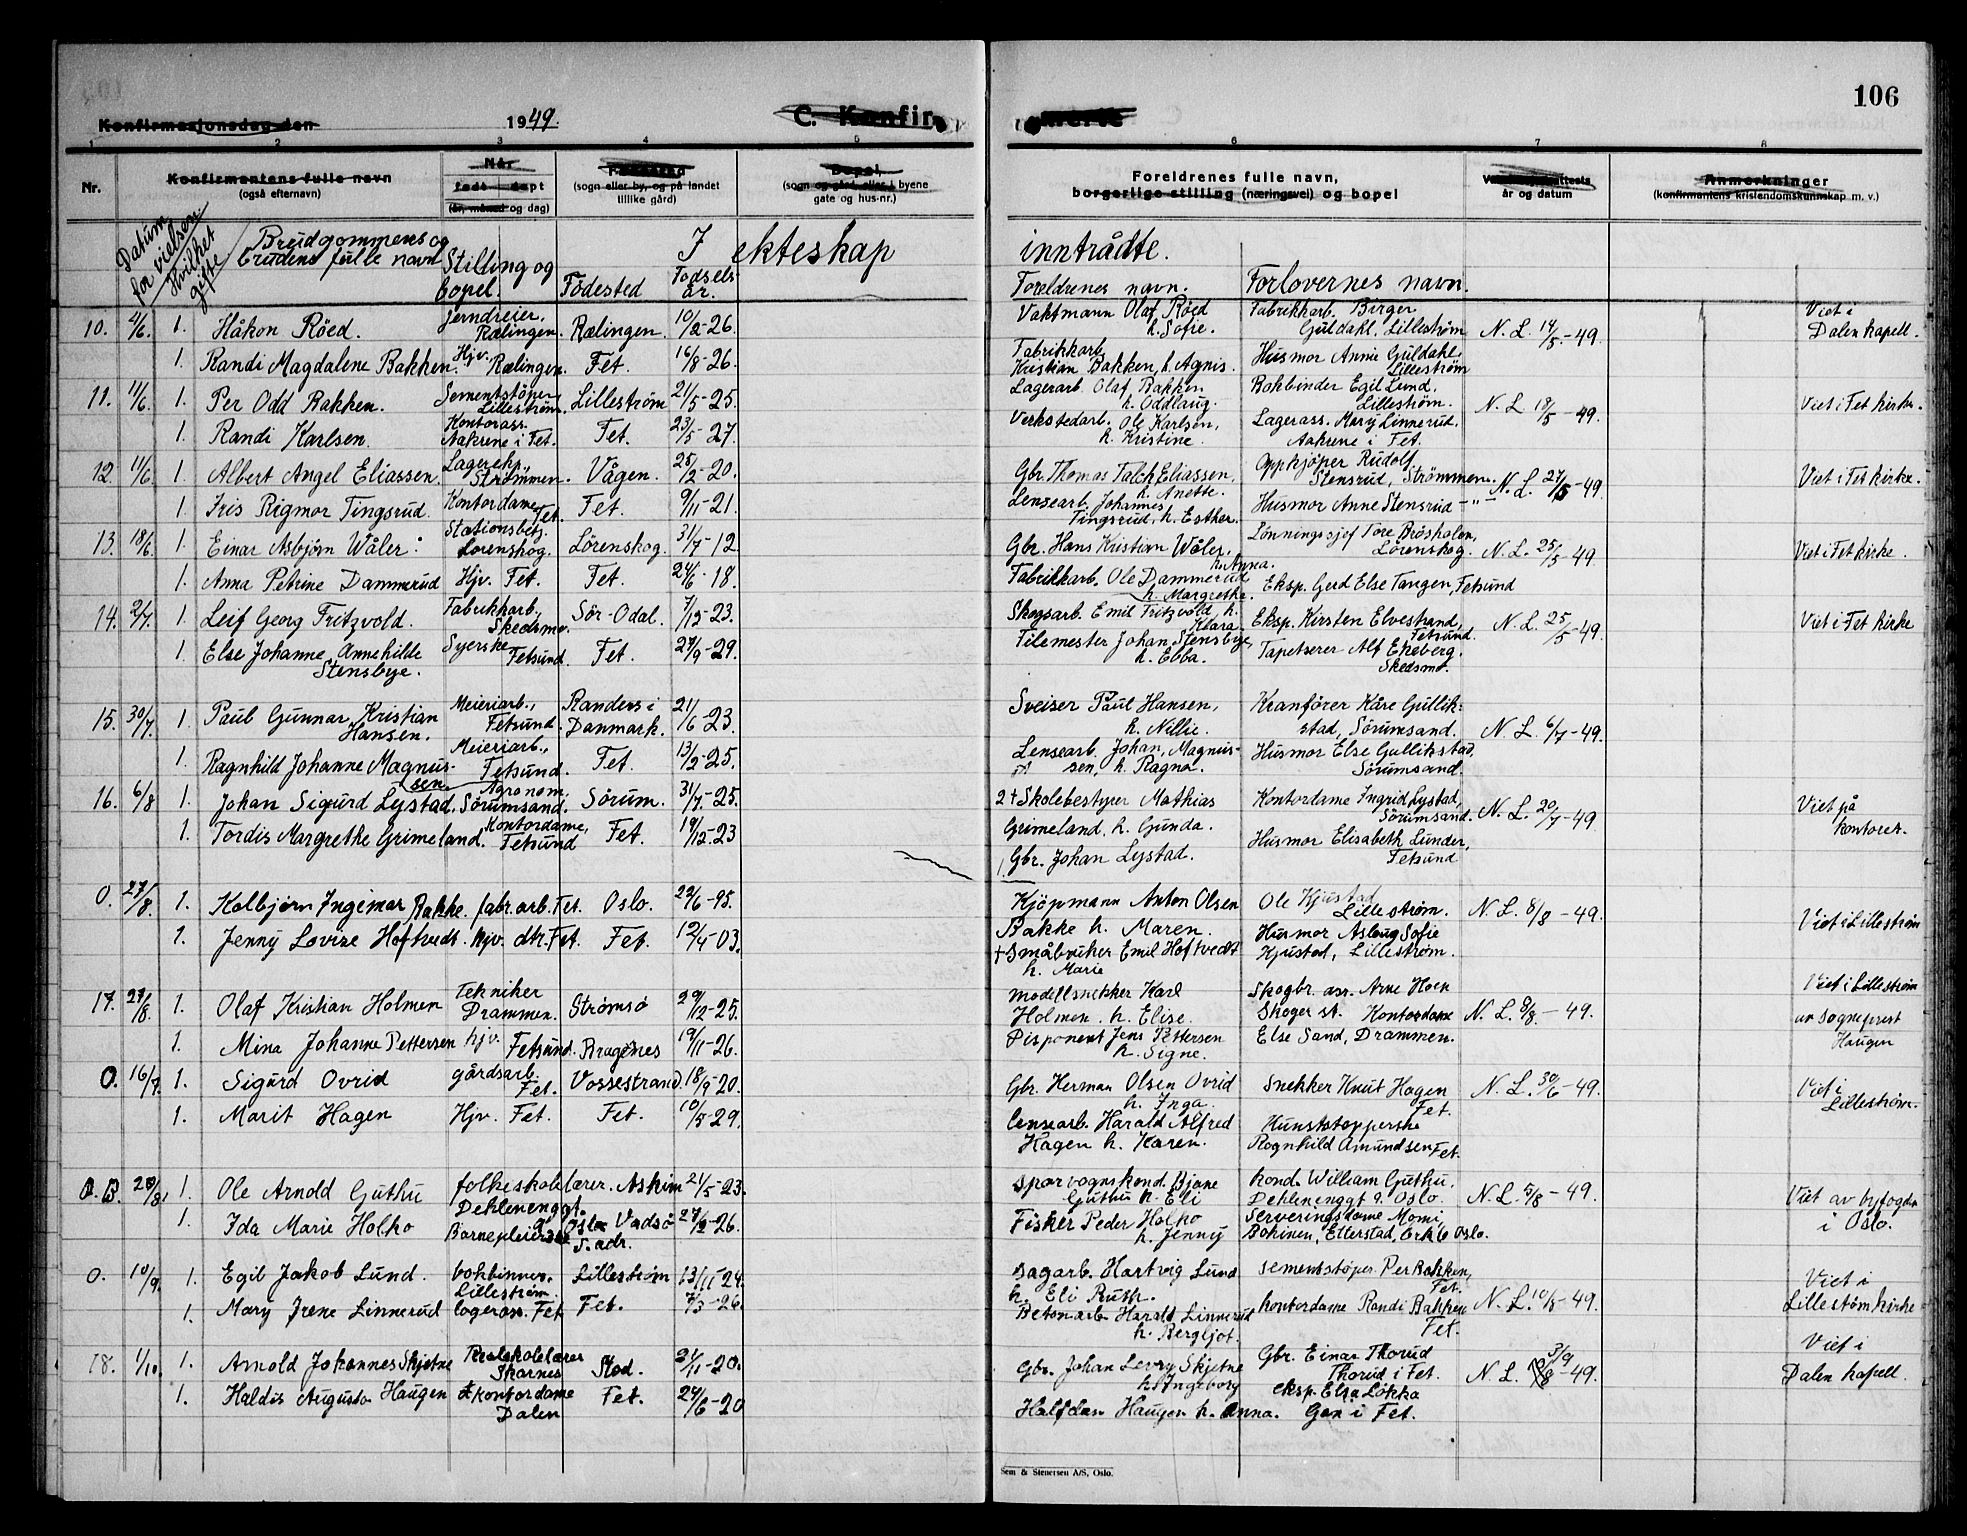 106
Konfirmasjonsdag den 1949. C. Konfirmerte
1 2 3 4 5 6 7 8
Nr.
Konfirmantens fulle navn
(også efternavn)
Når
født døpt
(år, måned og dag)
Fødested
(sogn eller by, og på landet
tillike gård)
Bopel,
(sogn og gård, eller i byene
gate og hus-nr.)
Foreldrenes fulle navn,
borgerlige stilling (næringsvei) og bopel
år og datum
Anmerkninger
(konfirmantens kristendomskunnskap m. v.)
Datum for vielsen
Hvilket gifte
Brudgommens og
brudens fulle navn
Stilling og
bopel.
Födested
Födsels-
år.
I ekteskap inntrådte.
Foreldrenes navn. Forlovernes navn.
10. 4/6 1. Håkon Röed. Jerndreier, Rælingen. Rælingen. 10/2-26. Vaktmann Olaf Röed h. Sofie. Fabrikkarb. Birger Guldahl, Lilleström N. L. 14/5.-49. Viet i Dalen kapell.
1. Randi Magdalene Bakken. Hjv. Rælingen. Fet. 16/8-26. Fabrikkarb. Kristian Bakken, h. Agnis. Husmor Annie Guldahl, Lilleström
11. 11/6. 1. Per Odd Bakken. Sementstöper, Lilleström. Lilleström 21/5-25. Lagerarb Olaf Bakken h. Oddlaug. Bokbinder Egil Lund. Lilleström. N. L 18/5-49. Viet i Fet kirke.
1. Randi Karlsen. Kontorass. Aahrene i Fet. Fet. 23/5-27. Verkstedarb. Ole Karlsen, h. Kristine. Lagerass. Mary Linnerud. Aahrene i Fet.
12. 11/6. 1. Albert Angel Eliassen. Lagereksp., Strömmen. Vågen. 25/12-20. Gbr. Thomas Falck Eliassen, h. Anette. Oppkjöper Rudolf Stensrud, Strömmen. N. L. 27/5-49. Viet i Fet kirke.
1. Iris Rigmor Tingsrud. Kontordame, Fet. Fet. 9/11-21. Lensearb. Johannes Tingsrud, h. Esther. Husmor Anne Stensrud -"-
13. 18/6. 1. Einar Asbjörn Wåler. Stationsbetj. Lørenskog. Lörenskog. 31/7-12 Gbr. Hans Kristian Wåler, h. Anna. Lönningssjef Tore Bröskalen, Lörenskog. N. L. 25/5-49. Viet i Fet kirke.
1. Anna Petrine Dammerud Hjv. Fet. Fet. 24/6-18. Fabrikkarb. Ole Dammerud h. Margrethe. Eksp. Gerd Else Tangen, Fetsund
14. 2/7. 1. Leif Georg Fritzvold. Fabrikkarb., Skedsmo. Sör-Odal. 7/12-23. Skogsarb. Emil Fritzvold, h. Klara. Eksp. Kirsten Elvestrand, Fetsund. N. L. 25/5-49. Viet i Fet kirke
1. Else Johanne Annehilde Stensbye. Syerske Fetsund. Fet. 27/9-29. Filemester Johan Stensbye, h. Ebba. Tapetserer Alf Ekeberg. Skedsmo.
15. 30/7. 1. Paul Gunnar Kristian Hansen. Meieriarb., Fetsund. Randers i Danmark. 21/6-23. Sveiser Paul Hansen, h. Nillie. Kranförer Kåre Gullik- stad, Sörumsand. N. L. 6/7-49.
1. Ragnhild Johanne Magnus- sen. Meieriarb., Fetsund. Fet. 13/2-25. Lensearb. Johan, Magnus- sen, h. Ragna. Husmor Else Gullikstad, Sörumsand.
16. 6/8 1. Johan Sigurd Lystad. Agronom. Sörumsand. Sörum. 31/7-25. 2 + Skolebestyrer Mathias Grimeland, h. Gunda. Kontordame Ingrid Lystad, Sörumsand. N. L. 20/7-49. Viet på kontoret.
1. Tordis Margrethe Grimeland. Kontordame, Fetsund Fet. 19/12-23 1. Gbr. Johan Lystad. Husmor Elisabeth Lunder, Fetsund
0. 27/8. 1. Kolbjørn Ingemar Bakke. fabr.arb. Fet. Oslo. 22/6-95. Kjöpmann Anton Olsen Bakke h. Maren. Ole Kjustad Lillestrøm. N. L. 8/8-49. Viet i Lillestrøm
1. Jenny Lovise Hoftvedt. hjv. dtr. Fet. Fet. 12/4-03. + Småbruker Emil Hoftvedt h. Marie Husmor Aslaug Sofie Kjustad, Lillestrøm.
17. 27/8. 1. Olaf Kristian Holmen Tekniker Drammen. Strømsö 29/12-25. Modellsnekker Karl Holmen. h. Elise. Skogbr. ass. Arne Hoen Skoger st. N. L. 9/8.-49. Viet i Lillestrøm av Sogneprest Haugen
1. Mina Johanne Pettersen hjv. Fetsund. Bragenes 19/11-26. Disponent Jens Pettersen h. Signe. Kontordame Else Sand, Drammen.
0. 16/7. 1. Sigurd Ovrid gårdsarb. Fet. Vossestrand. 18/9-20. Gbr. Herman Olsen Ovrid h. Inga. Snekker Knut Hagen Fet. N. L. 30/6-49. Viet i Lillestrøm.
1. Marit Hagen Hjv. Fet. Fet. 10/5-29. Lensearb. Harald Alfred Hagen h. Karen. Kunststopperske Ragnhild Amundsen Fet.
O.B. 20/8. 1. Ole Arnold Guthu folkeskolelærer. Dehlenenggt. 9 Oslo Askim 21/5-23. Sporvognskond. Bjane Guthu h. Eli kond. William Guthu, Dehlenenggt 9. Oslo. N. L. 5/8-49. Viet av byfogden i Oslo.
1. Ida Marie Holko Barnepleierske s. adr. Vadsö 27/2-26. Fisker Peder Holko h. Jenny Serveringsdame Momi, Bohinen, Etterstad, brk 6 Oslo.
0. 10/9. 1. Egil Jakob Lund. bokbinner. Lillestrøm. Lillestrøm 13/11-24. Sagarb. Hartvig Lund h. Eli Ruth. Sementstöper Per Bakken, Fet. N. L. 10/8-49. Viet i Lillestøm kirke
1. Mary Irene Linnerud lagerass. Fet Fet. 7/3-26. Betonarb. Harald Linnerud h. Bergljot. kontordame Randi Bakken Fet.
18. 1/10. 1. Arnold Johannes Skjetne Realskolelærer Skarnes Stod. 21/11-20. Gbr. Johan Levry Skjetne h. Ingeborg Gbr. Einar Thorud Thorud i Fet. N. L. 3/9-49. Viet i Dalen kapell.
1. Haldis Augusta Haugen kontordame Dalen Fet. 24/6-20 Halfdan Haugen h. Anna. eksp. Elsa Løkka Gan i Fet.
Sem & Stenersen A/S, Oslo.